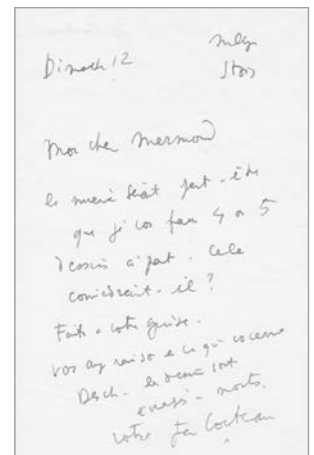 Dimanch 12
Mon cher Mermod
le mieux serait peut-être
que je vos fasse 4 ou 5
dessins à part. Cela
conviendrait-il ?
Faites à votre guise.
vos avez raison en ce qui concerne
Desch - les dessins sont
morts.
votre Jean Cocteau